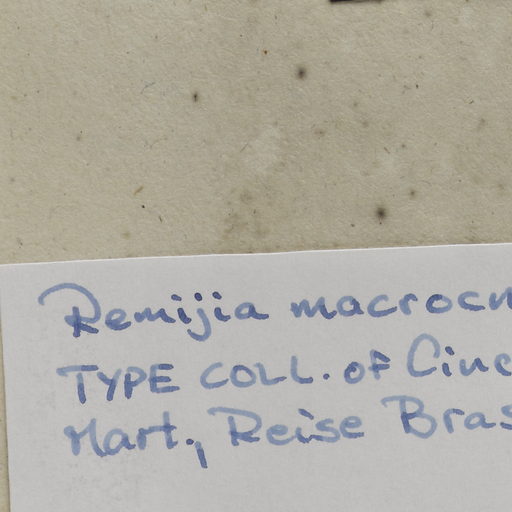 Remijia macrocn
TYPE COLL. OF Cinc
Mart., Reise Bras